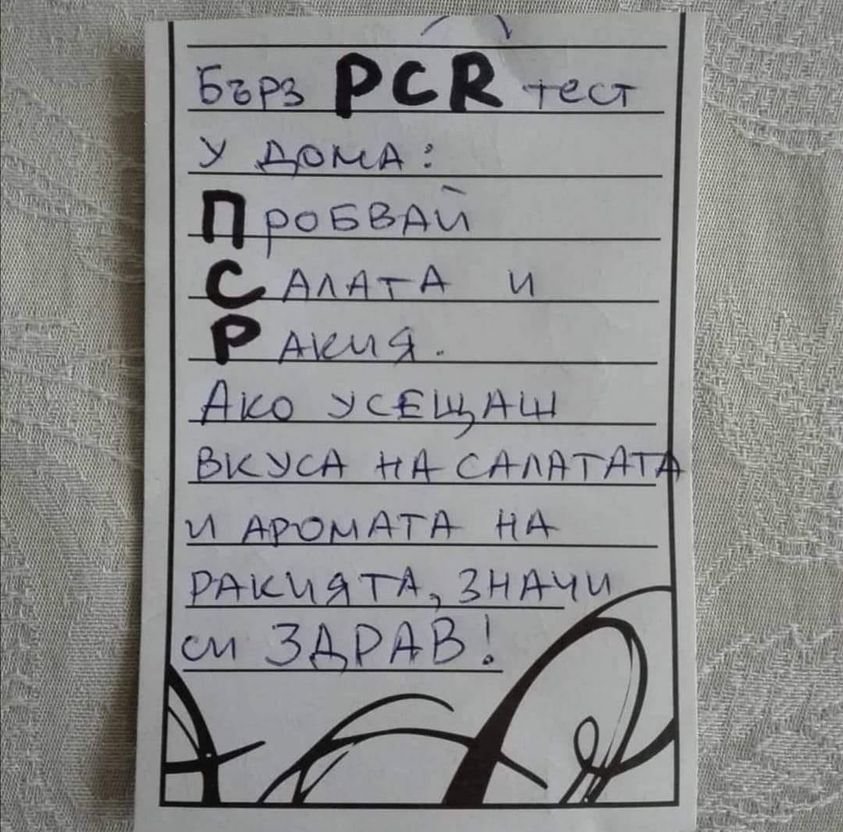 Бърз PCR тест
у дома:
Пробвай
Салата и
Ракия.
Ако усещаш
вкуса на салатата
и аромата на
ракията, значи
си ЗДРАВ!